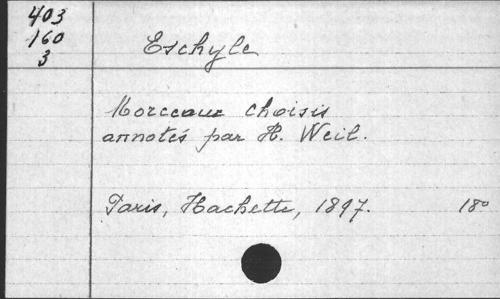 403
160
3
Eschyle
Morceaux choisis
annotés par H. Weil.
Paris, Hachette, 1897. 18°